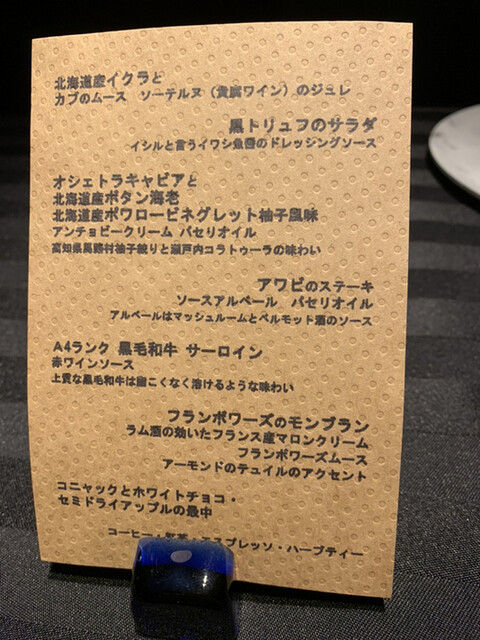 北海道産イクラと
カブのムース　ソーテルヌ（貴腐ワイン）のジュレ
黒トリュフのサラダ
イシルと言うイワシ魚醤のドレッシングソース
オシェトラキャビアと
北海道産ボタン海老
北海道産ポワロービネグレット柚子風味
アンチョビークリーム　パセリオイル
高知県馬路村柚子絞りと瀬戸内コラトゥーラの味わい
アワビのステーキ
ソースアルベール　パセリオイル
アルベールはマッシュルームとベルモット酒のソース
A4ランク　黒毛和牛　サーロイン
赤ワインソース
上質な黒毛和牛は脂こくなく溶けるような味わい
フランボワーズのモンブラン
ラム酒の効いたフランス産マロンクリーム
フランボワーズムース
アーモンドのテュイルのアクセント
コニャックとホワイトチョコ・
セミドライアップルの最中
コーヒー・紅茶・エスプレッソ・ハーブティー